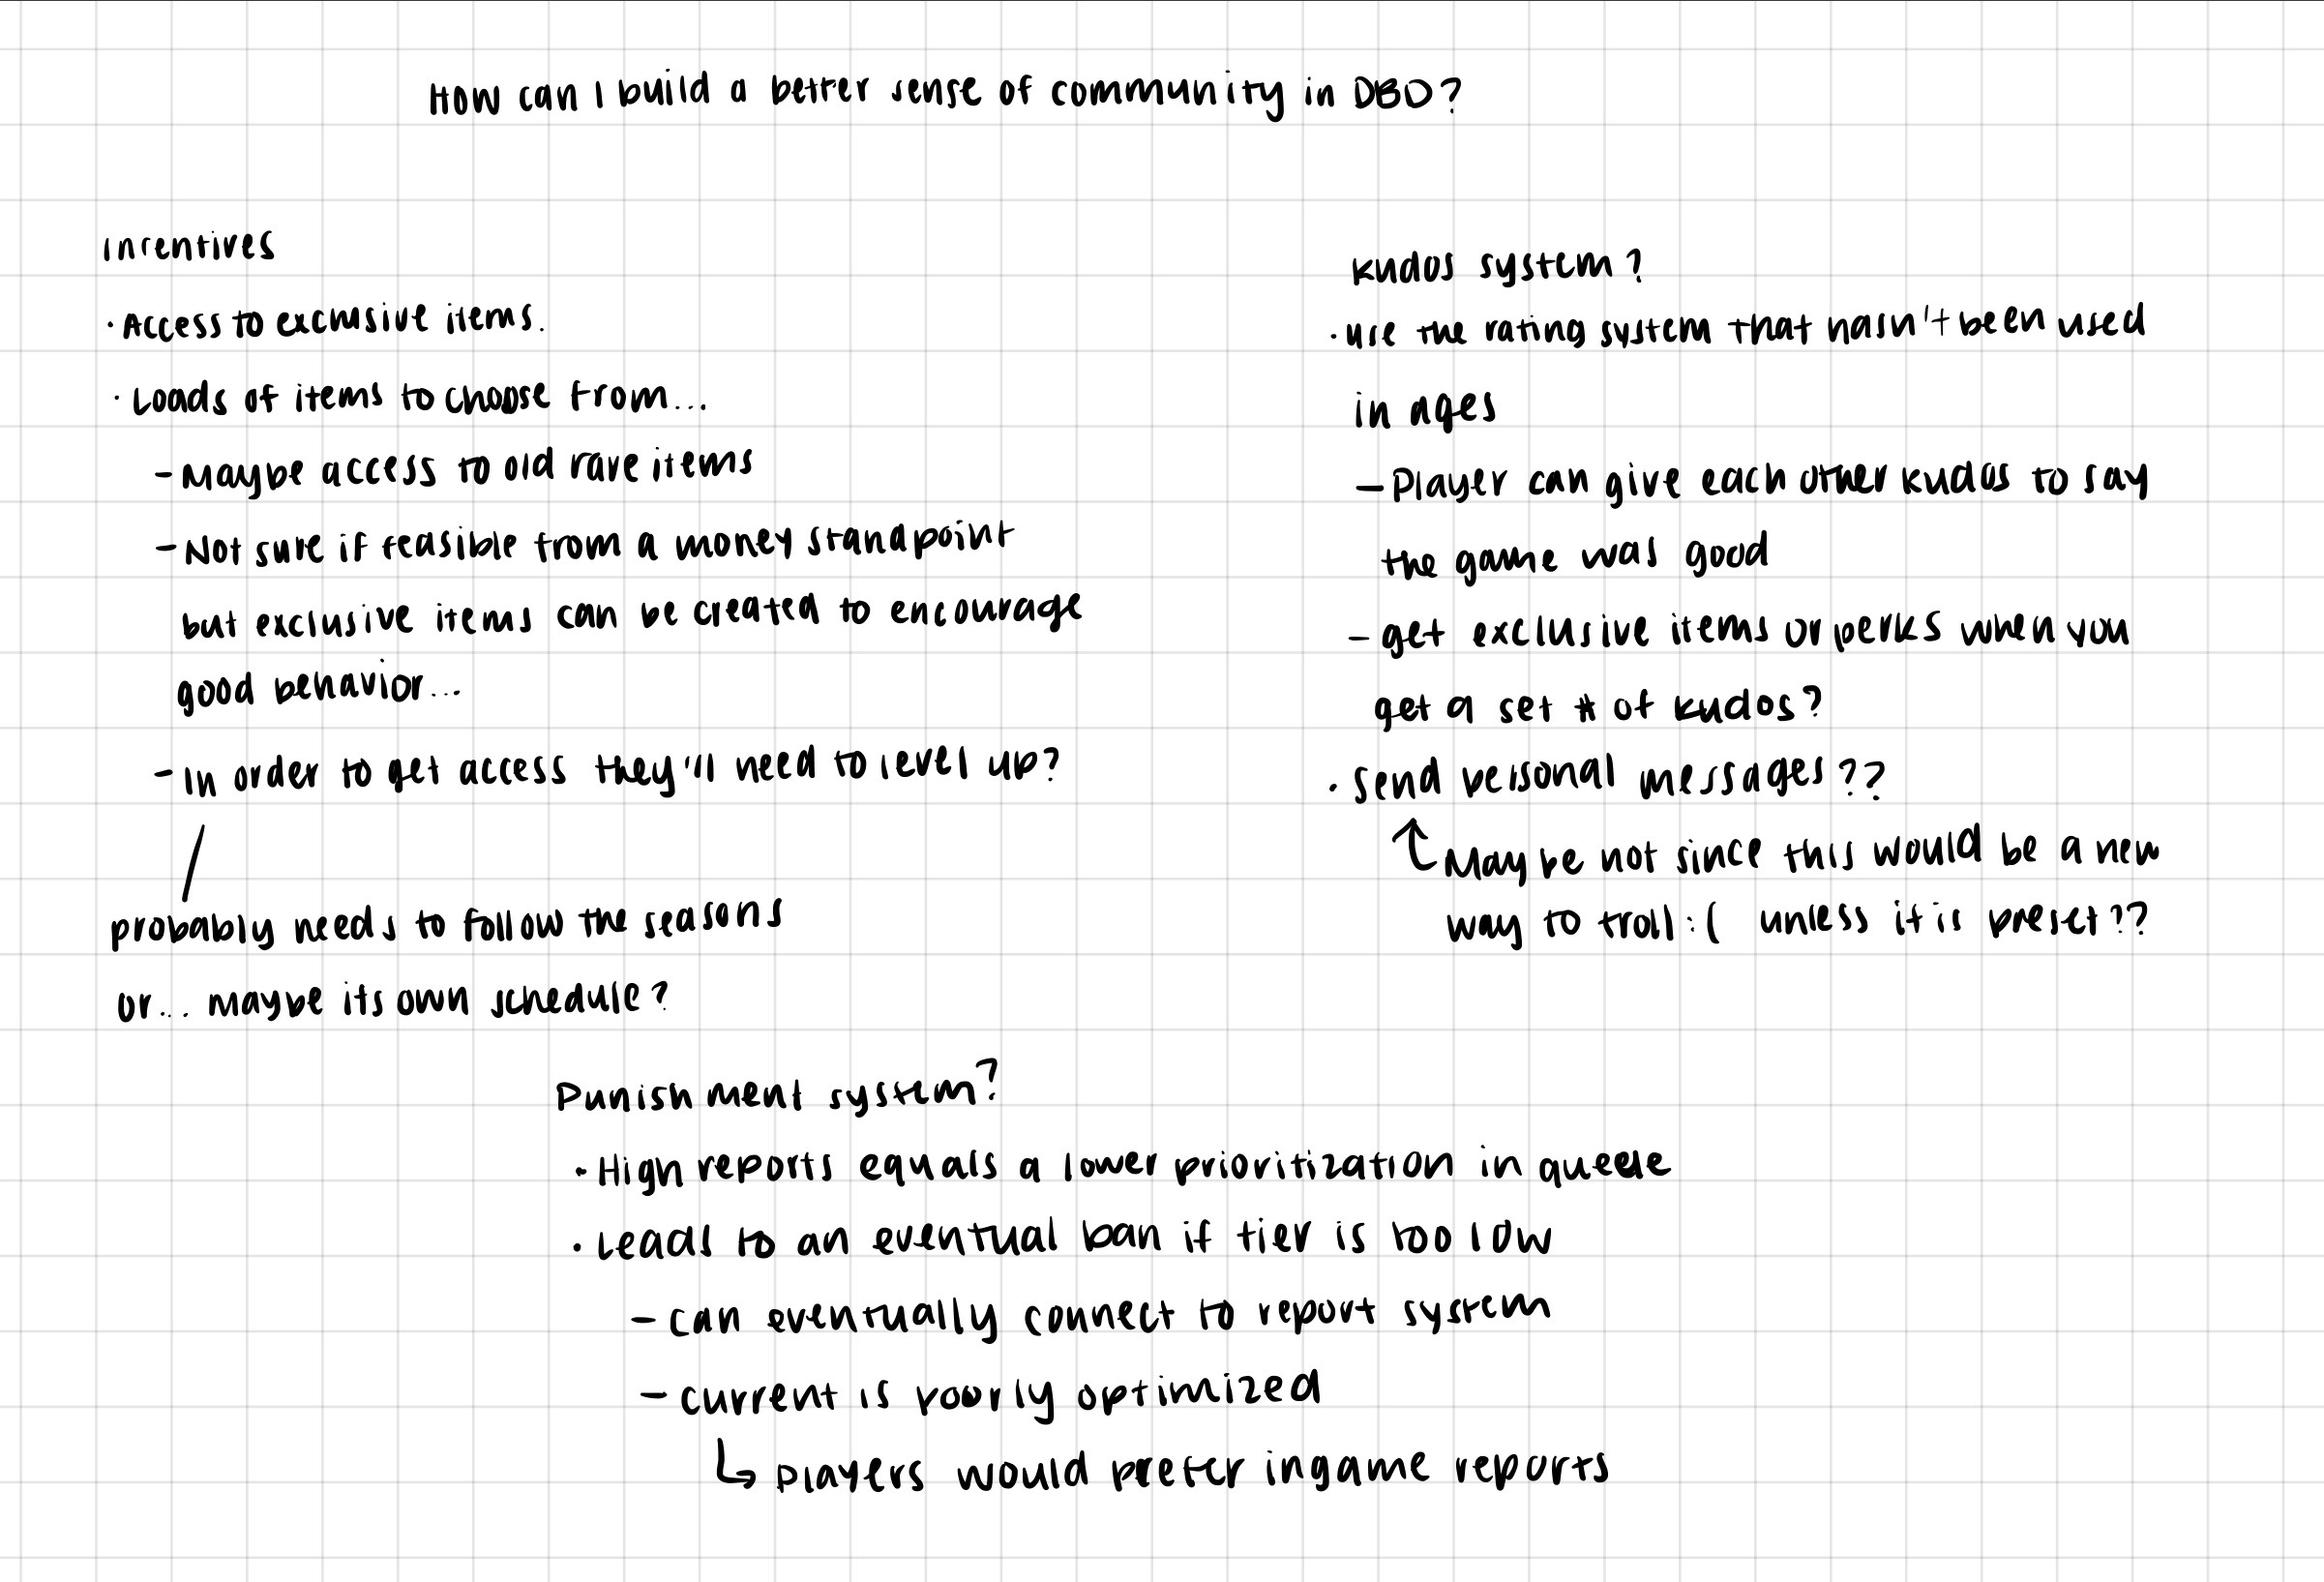 How can I build a better sense of community in DBD?
Incentives
· Access to exclusive items.
· Loads of items to choose from...
- Maybe access to old rare items
- Not sure if feasible from a money standpoint
but exclusive items can be created to encourage
good behavior...
- In order to get access they'll need to level up?
probably needs to follow the seasons
or... maybe its own schedule?
Kudos system?
· use the rating system that hasn't been used
in ages
- Player can give each other kudos to say
the game was good
- get exclusive items or perks when you
get a set # of kudos?
· send personal messages??
Maybe not since this would be a new
way to troll :( unless it is preset??
Punishment system?
· High reports equals a lower prioritization in queue
· Leads to an eventual ban if tier is too low
- can eventually connect to report system
- current is poorly optimized
↳ players would prefer ingame reports